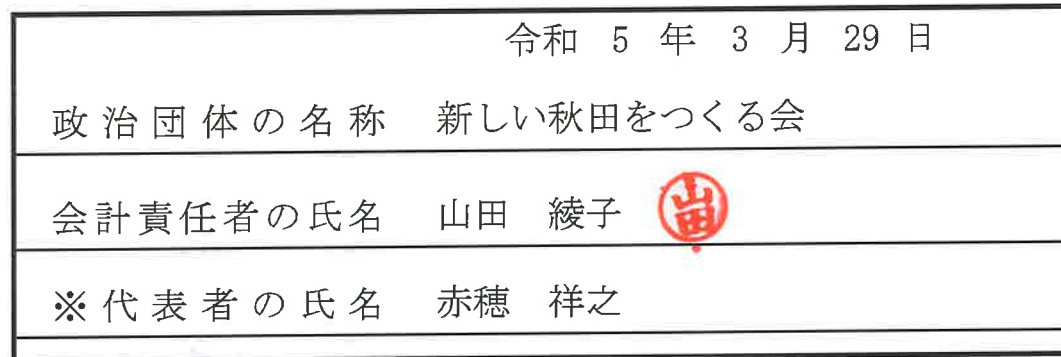 令和 5 年 3 月 29 日
政治団体の名称 新しい秋田をつくる会
会計責任者の氏名 山田 綾子 山田
※代表者の氏名 赤穂 祥之